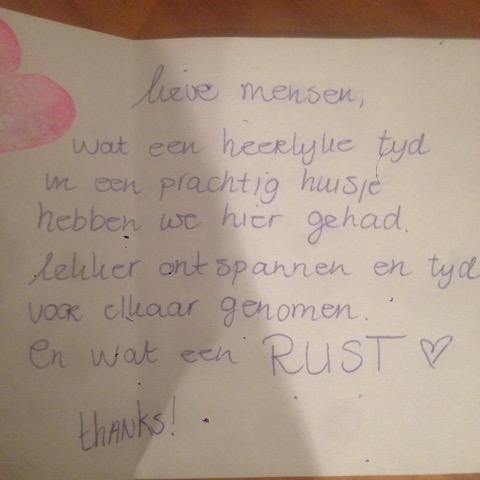 lieve mensen,
wat een heerlyke tyd
in een prachtig huisje
hebben we hier gehad.
lekker ontspannen en tyd
voor elkaar genomen.
En wat een RUST ♡
thanks!